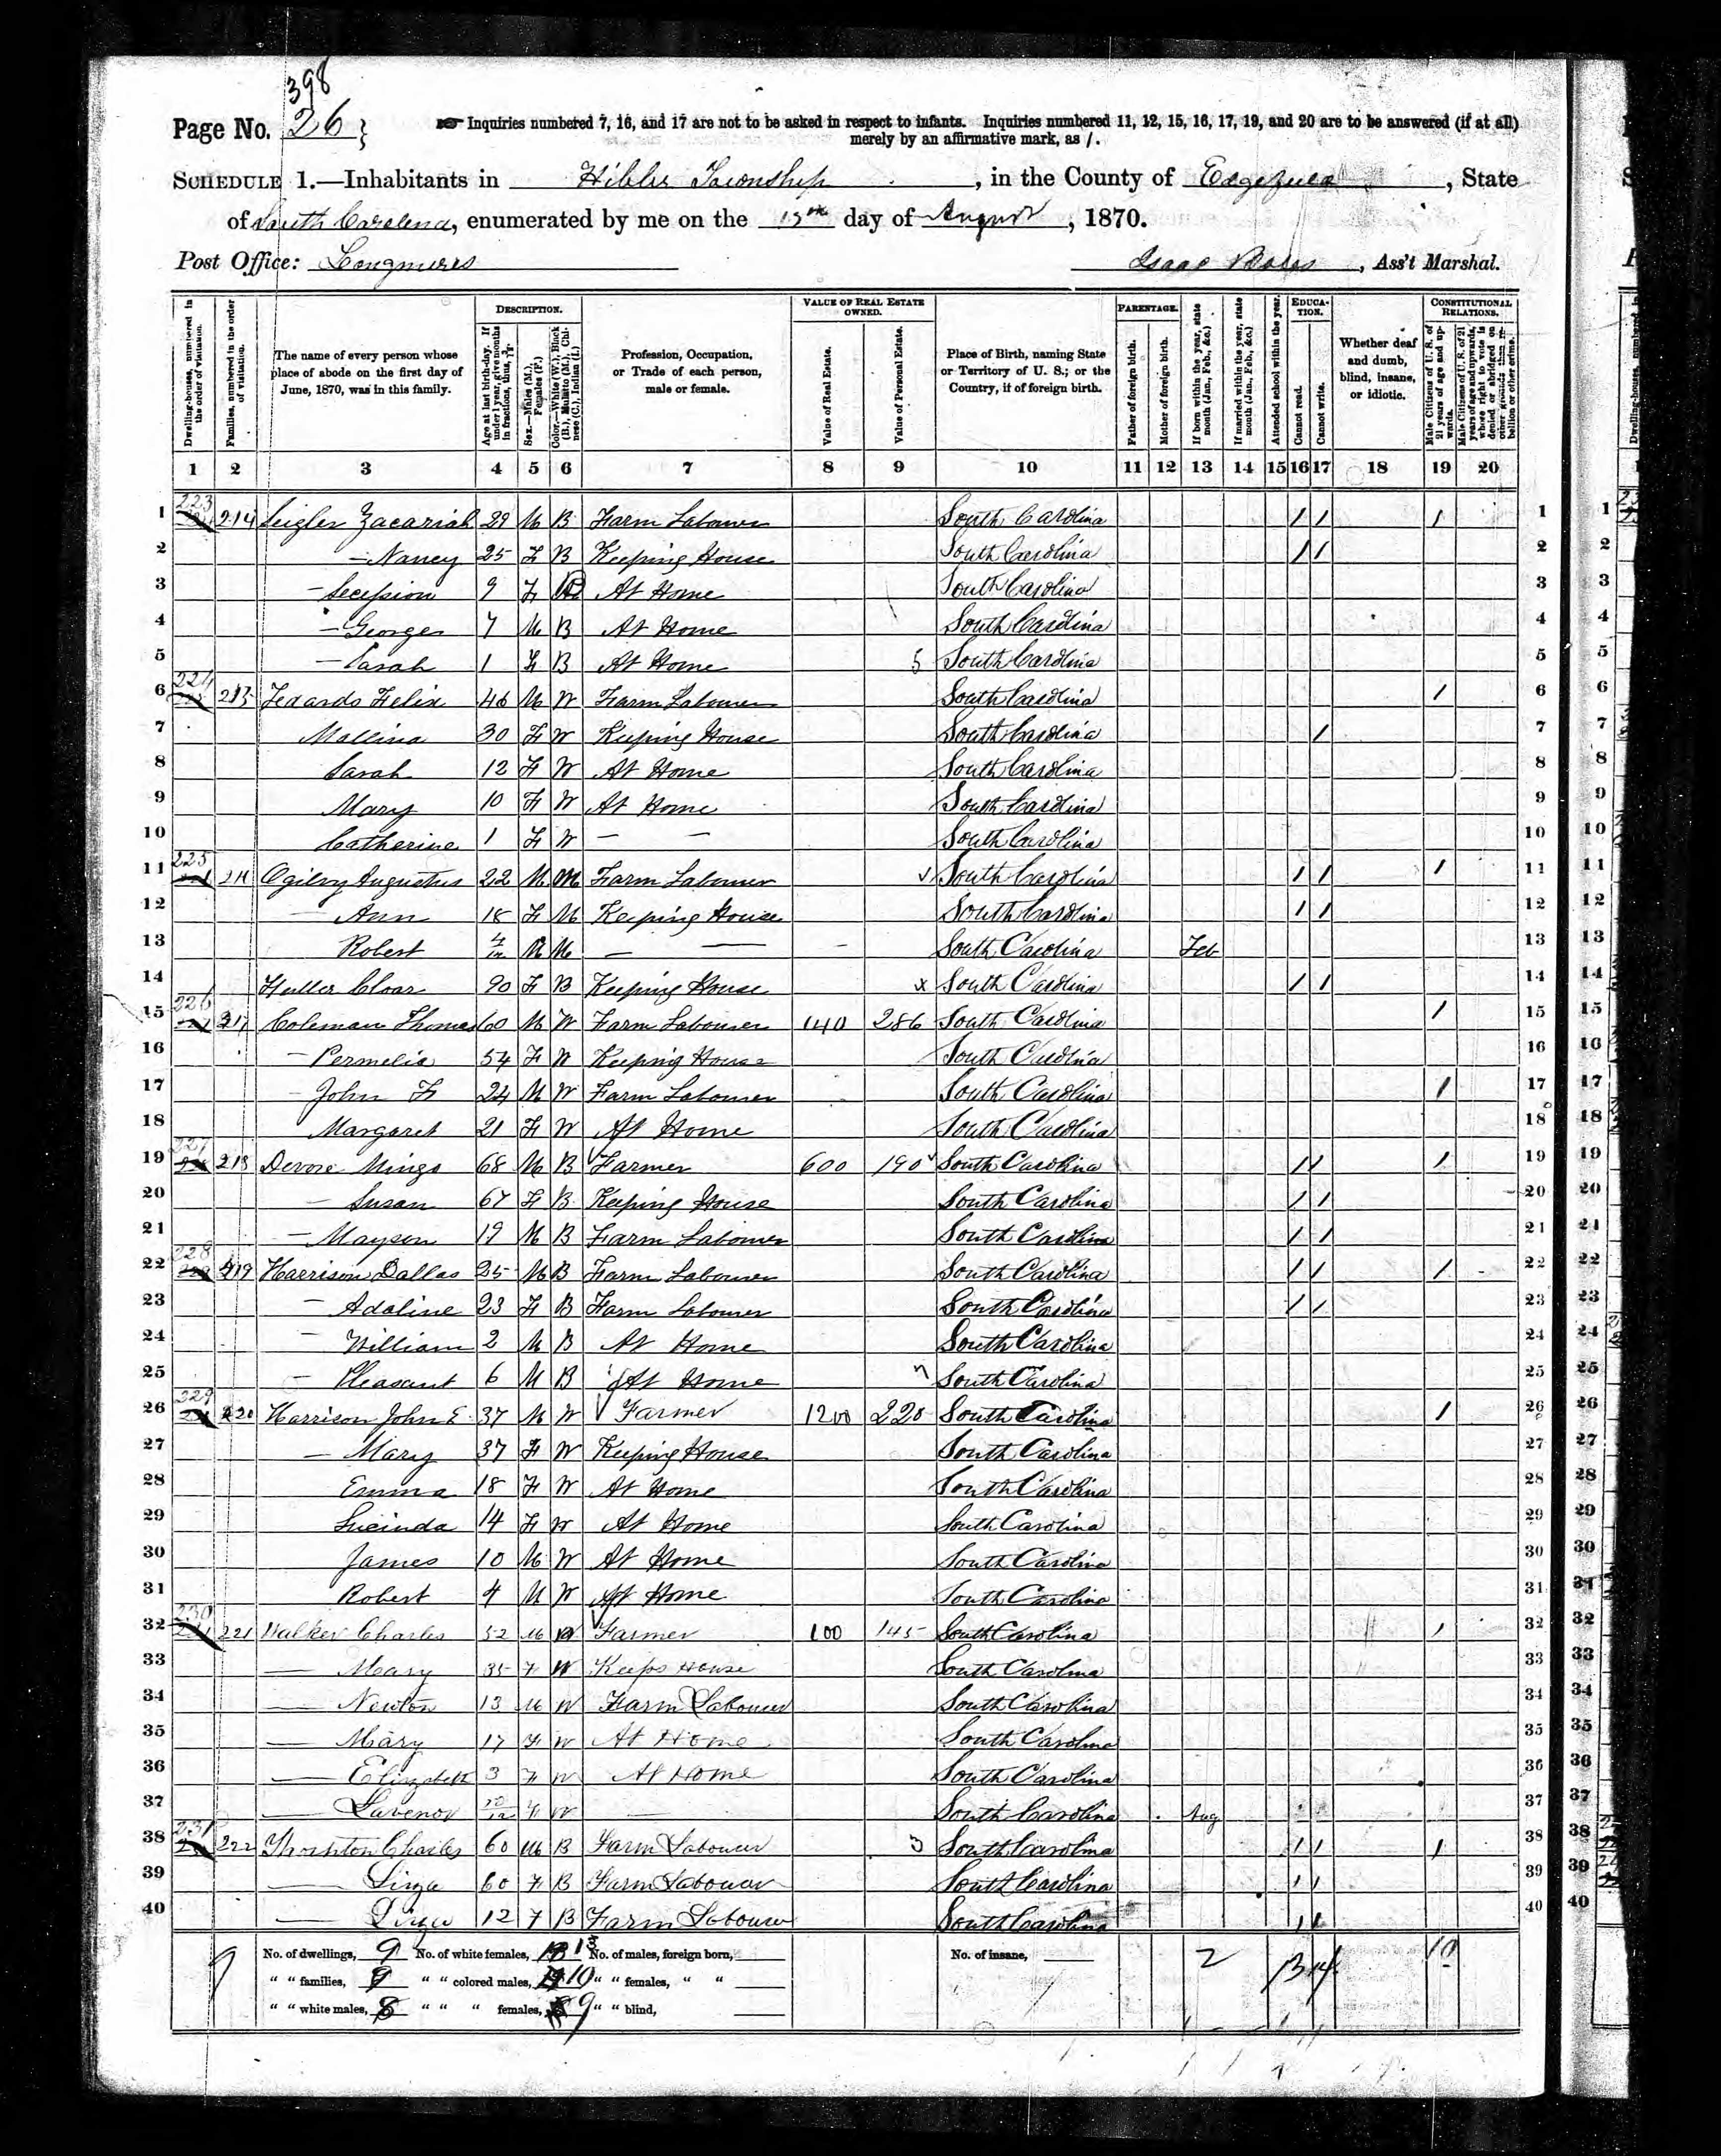 398
Page No. 26
Inquiries numbered 7, 16, and 17 are not to be asked in respect to infants. Inquiries numbered 11, 12, 15, 16, 17, 19, and 20 are to be answered (if at all)
merely by an affirmative mark, as /.
SCHEDULE 1.—Inhabitants in Hibler Township, in the County of Edgefield, State
of South Carolina, enumerated by me on the day of August, 1870.
Post Office: Longmires
Isaac , Ass't Marshal.
Dwelling-houses, numbered in the order of visitation.
Families, numbered in the order of visitation.
The name of every person whose place of abode on the first day of June, 1870, was in this family.
DESCRIPTION.
Age at last birth-day. If under 1 year, give months in fractions, thus, 3/12.
Sex.—Males (M.), Females (F.)
Color.—White (W.), Black (B.), Mulatto (M.), Chinese (C.), Indian (I.)
Profession, Occupation, or Trade of each person, male or female.
VALUE OF REAL ESTATE OWNED.
Value of Real Estate.
Value of Personal Estate.
Place of Birth, naming State or Territory of U. S.; or the Country, if of foreign birth.
PARENTAGE.
Father of foreign birth.
Mother of foreign birth.
If born within the year, state month (Jan., Feb., &c.)
If married within the year, state month (Jan., Feb., &c.)
Attended school within the year.
EDUCATION.
Cannot read.
Cannot write.
Whether deaf and dumb, blind, insane, or idiotic.
CONSTITUTIONAL RELATIONS.
Male Citizens of U. S. of 21 years of age and upwards.
Male Citizens of U. S. of 21 years of age and upwards, whose right to vote is denied or abridged on other grounds than rebellion or other crime.
1 2 3 4 5 6 7 8 9 10 11 12 13 14 15 16 17 18 19 20
1 223 214 Seigler Zacariah 29 M B Farm Labourer South Carolina / / / 1
2 — Nancy 25 F B Keeping House South Carolina / / 2
3 — Secession 9 F B At Home South Carolina 3
4 — George 7 M B At Home South Carolina 4
5 — Sarah 1 F B At Home 5 South Carolina 5
6 224 215 Felix 46 M W Farm Labourer South Carolina / 6
7 Mallina 30 F W Keeping House South Carolina / 7
8 Sarah 12 F W At Home South Carolina 8
9 Mary 10 F W At Home South Carolina 9
10 Catherine 1 F W — — South Carolina 10
11 225 216 Ogilvy Augustus 22 M M Farm Labourer South Carolina / / / 11
12 — Ann 18 F M Keeping House South Carolina / / 12
13 Robert 4/12 M M — — South Carolina Feb 13
14 Fuller Cloar 90 F B Keeping House x South Carolina / / 14
15 226 217 Coleman Thomas 60 M W Farm Labourer 140 286 South Carolina / 15
16 — Permelia 54 F W Keeping House South Carolina 16
17 — John F 24 M W Farm Labourer South Carolina / 17
18 Margaret 21 F W At Home South Carolina 18
19 227 218 Devore Mingo 68 M B Farmer 600 190 South Carolina / / / 19
20 — Susan 67 F B Keeping House South Carolina / / 20
21 — Mayson 19 M B Farm Labourer South Carolina / / 21
22 228 219 Harrison Dallas 25 M B Farm Labourer South Carolina / / / 22
23 — Adaline 23 F B Farm Labourer South Carolina / / 23
24 — William 2 M B At Home South Carolina 24
25 — Pleasant 6 M B At Home South Carolina 25
26 229 220 Harrison John E. 37 M W Farmer 1200 220 South Carolina / 26
27 — Mary 37 F W Keeping House South Carolina 27
28 Emma 18 F W At Home South Carolina 28
29 Lucinda 14 F W At Home South Carolina 29
30 James 10 M W At Home South Carolina 30
31 Robert 4 M W At Home South Carolina 31
32 230 221 Walker Charles 52 M W Farmer 100 145 South Carolina / 32
33 — Mary 35 F W Keeps House South Carolina 33
34 — Newton 13 M W Farm Labourer South Carolina 34
35 — Mary 17 F W At Home South Carolina 35
36 — Elizabeth 3 F W At Home South Carolina 36
37 — 10/12 F W — South Carolina Aug 37
38 231 222 Thornton Charles 60 M B Farm Labourer 3 South Carolina / / / 38
39 — 60 F B Farm Labourer South Carolina / / 39
40 — 12 F B Farm Labourer South Carolina / / 40
9 No. of dwellings, 9 No. of white females, 13 No. of males, foreign born, No. of insane, 2 10
" " families, 9 " " colored males, 10 " " females, " "
" " white males, 8 " " " females, 9 " " blind,